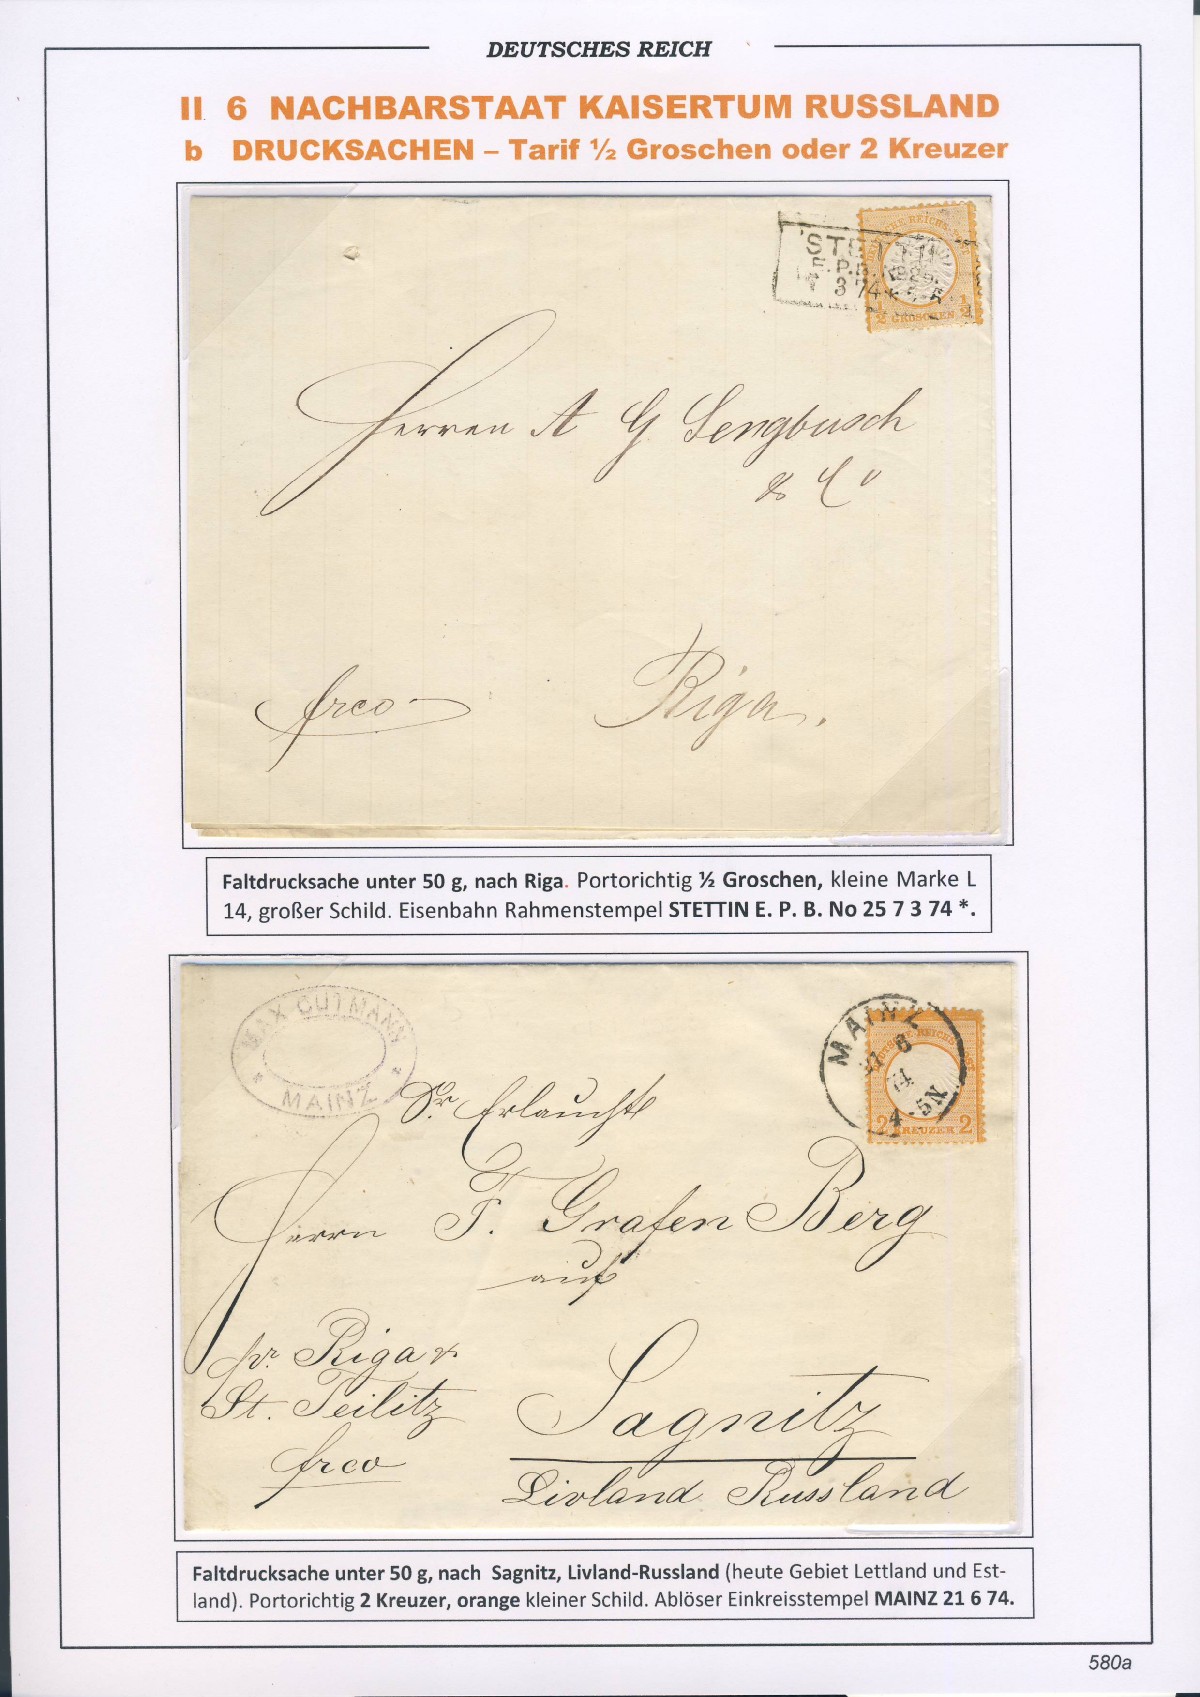 DEUTSCHES REICH
II 6 NACHBARSTAAT KAISERTUM RUSSLAND
b DRUCKSACHEN – Tarif ½ Groschen oder 2 Kreuzer
STETTIN
E. P. B.
3 74 *
½ GROSCHEN ½
Herren A G Sengbusch
& Co
frco
Riga.
Faltdrucksache unter 50 g, nach Riga. Portorichtig ½ Groschen, kleine Marke L
14, großer Schild. Eisenbahn Rahmenstempel STETTIN E. P. B. No 25 7 3 74 *.
MAX GUTMANN
* MAINZ *
MAINZ
21 6
74
4-5N.
2 KREUZER 2
Sr Erlaucht
Herrn F. Grafen Berg
auf
pr. Riga &
St. Teilitz
frco
Sagnitz
Livland Russland
Faltdrucksache unter 50 g, nach Sagnitz, Livland-Russland (heute Gebiet Lettland und Est-
land). Portorichtig 2 Kreuzer, orange kleiner Schild. Ablöser Einkreisstempel MAINZ 21 6 74.
580a